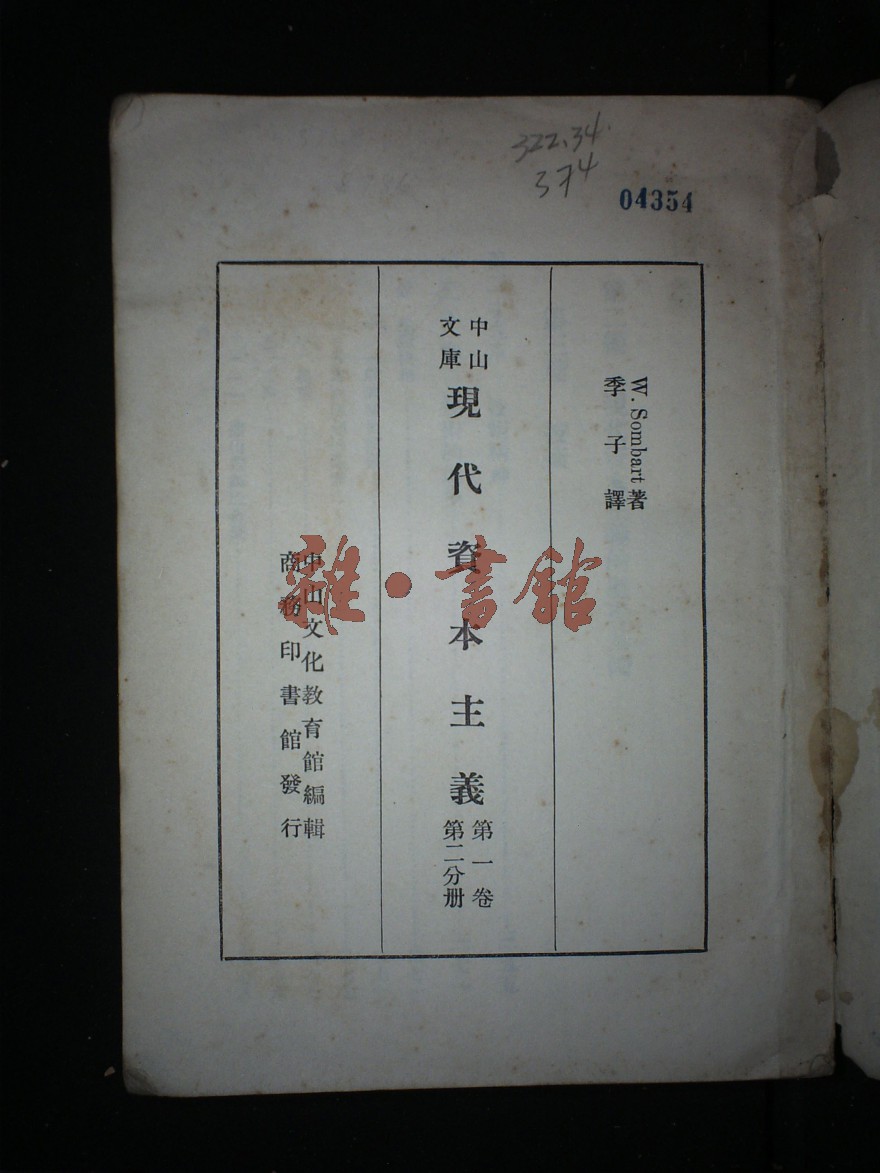 322.34
374
04354
W. Sombart著
季子譯
中山
文庫
現代資本主義
第一卷
第二分册
中山文化教育館編輯
商務印書館發行
雜·書館